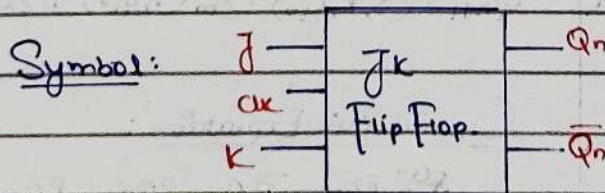 Symbol:
J
clk
K
JK
Flip Flop.
Qn
Q̅n